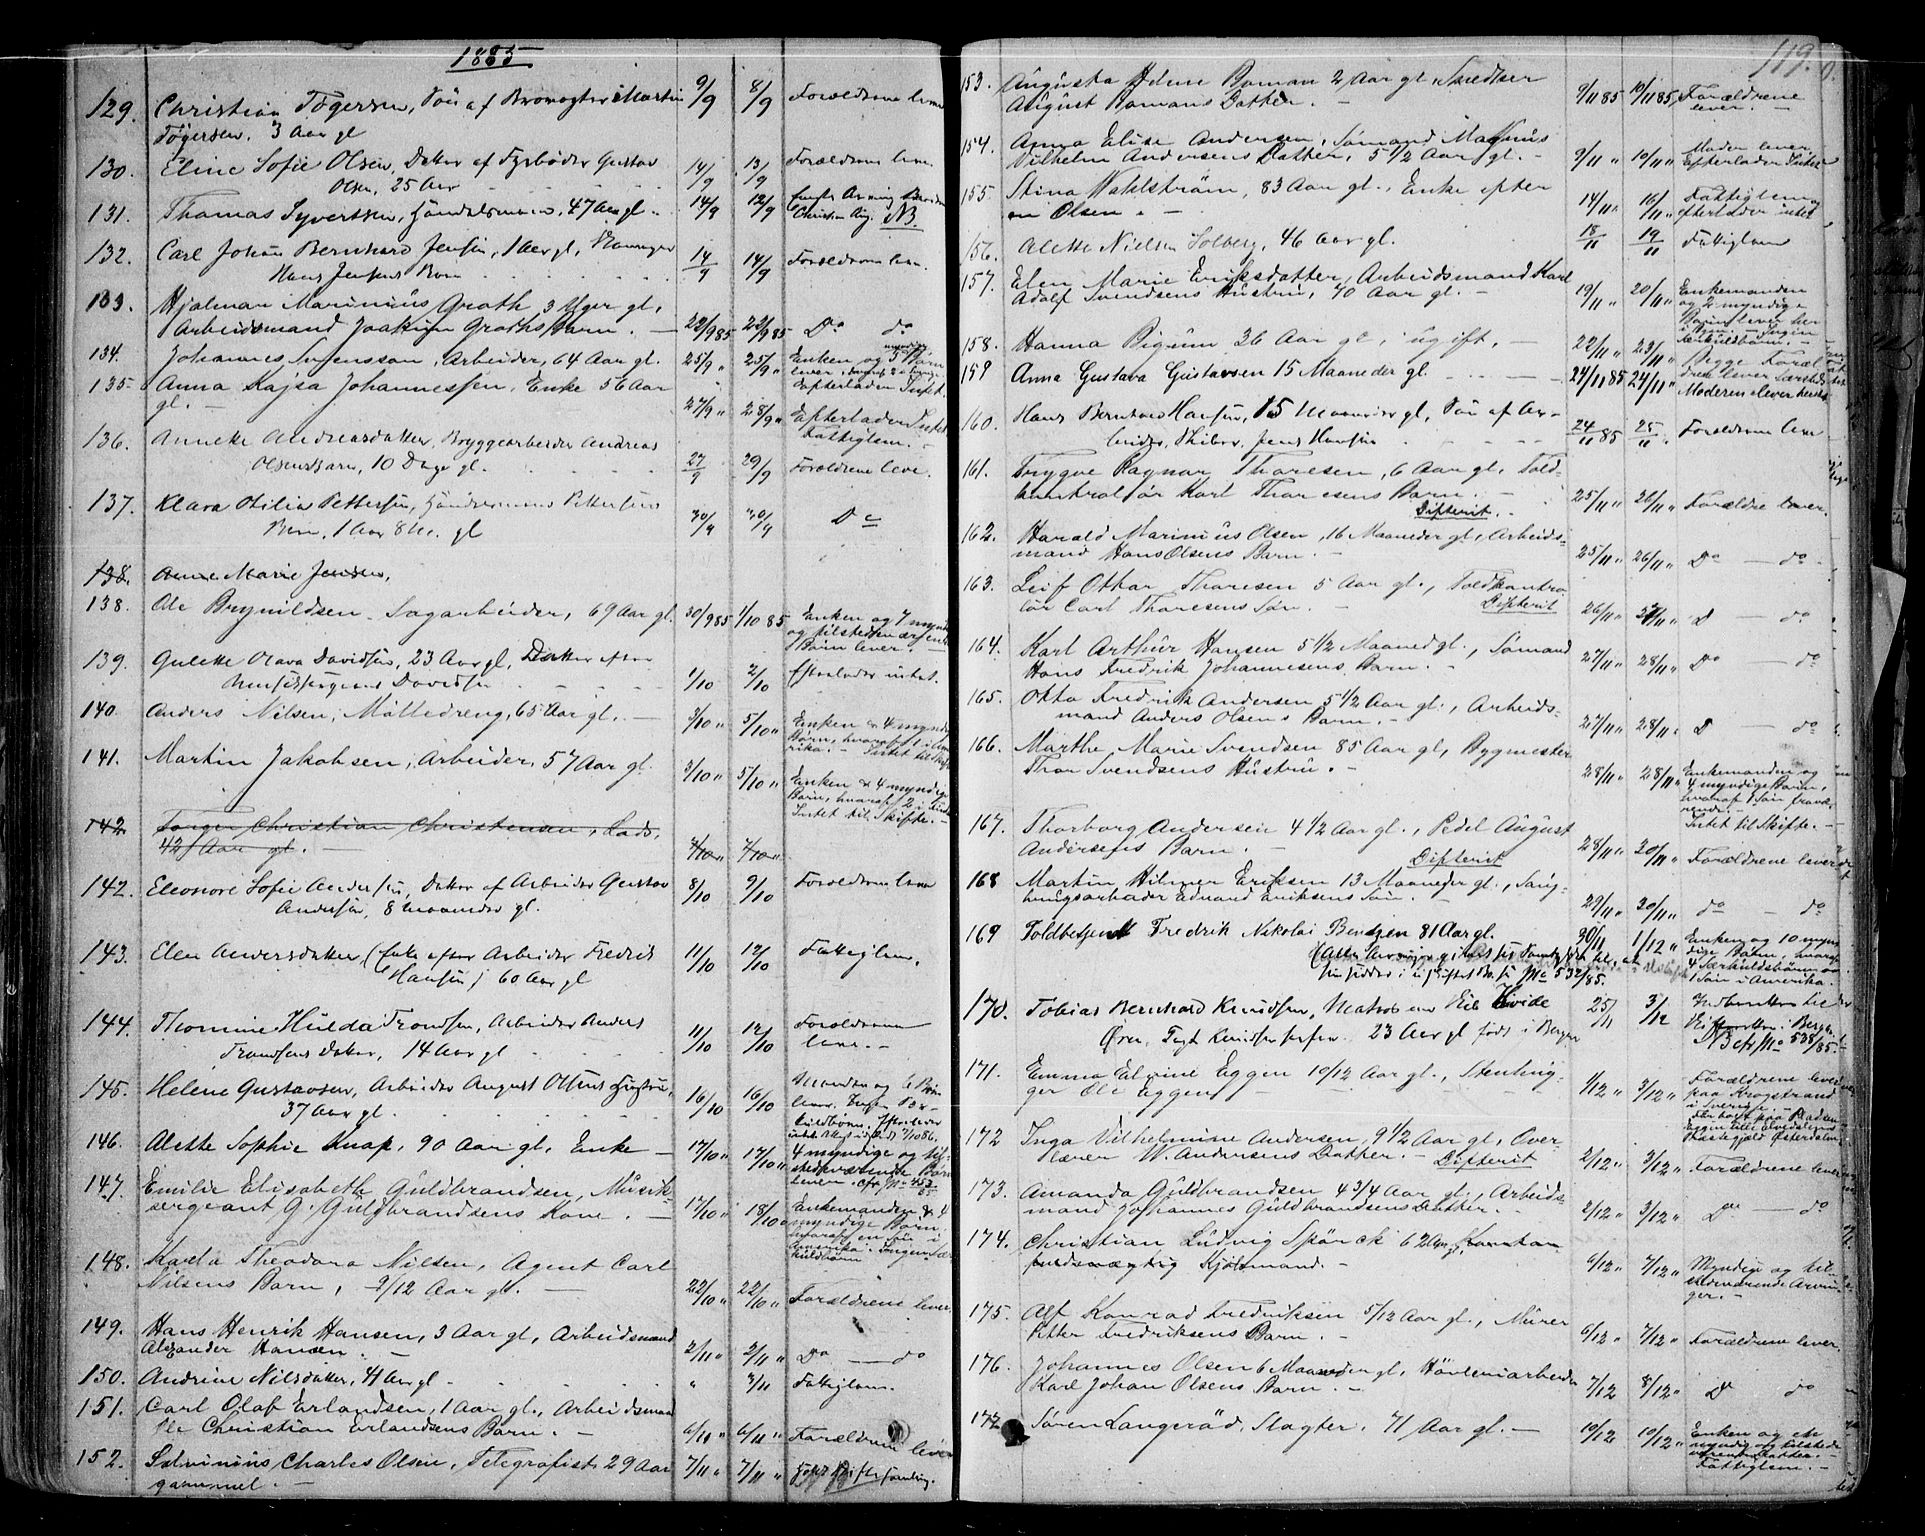 1885
129. Christian Tøgersen, Søn af Brovogter Martin 9/9 8/9 Forældrene leve
Tøgersen. 3 Aar gl
130. Eline Sofie Olsen, Datter af Fyrbøder Gustav 14/9 13/9 Forældrene leve.
Olsen, 25 Aar
131. Thomas Syvertsen, Handelsmand, 47 Aar gl. 14/9 12/9 NB.
132. Carl Johan Bernhard Jensen, 1 Aar gl, 14/9 14/9 Forældrene leve.
Hans Jensens Barn
133. Hjalmar Marinius Groth 3 Uger gl,
Arbeidsmand Joakim Groths Barn. 22/9 85 22/9 85 Do do
134. Johannes Svensson, Arbeider, 64 Aar gl. 25/9 " 25/9 " Enken og 5 Børn
lever,
135. Anna Kajsa Johannessen, Enke 56 Aar Efterlader Intet.
gl. 27/9 " 28/9 " Efterlader Intet
Fattiglem.
136. Anneke Andreasdatter, Bryggearbeider Andreas
Olsens Barn, 10 Dage gl. 27/9 29/9 Forældrene leve.
137. Klara Otilia Pettersen, Pettersens
Barn, 1 Aar 8 M. gl 30/9 30/9 Do
138. Anne Marie Jensen,
138. Ole Brynildsen Sagarbeider, 69 Aar gl. 30/9 85 1/10 85 Enken og 7 mynd
og tilstedeværende
Børn lever.
139. Gulette Olava Davidsen, 23 Aar gl, Datter efter
Davidsen 1/10 2/10 Efterlader intet.
140. Anders Nilsen, Mølledreng, 65 Aar gl. 3/10 " 5/10 " Enken & 4 mynd
Børn, hvoraf 1 i Ame
rika. - Intet til Skifte
141. Martin Jakobsen, Arbeider, 57 Aar gl. 3/10 " 5/10 " Enken & 4 myndige
Børn, hvoraf 2 i
Intet til Skifte.
142. Jørgen Christian Christensen, Lods,
42 Aar gl. 4/10 " 7/10 "
142. Eleonore Sofie Andersen, Datter af Arbeider Gustav 8/10 9/10 Forældrene leve
Andersen, 8 maaneder gl.
143. Elen Andersdatter (Enke efter Arbeider Fredrik 11/10 12/10 Fattiglem.
Hansen) 60 Aar gl
144. Thomine Hulda Tronsen, Arbeider Anders Forældrene
Tronsens Datter, 14 Aar gl 11/10 12/10 leve.
145. Helene Gustavsen, Arbeider August Olsens Hustru, 16/10 16/10 Manden og 6 Børn
37 Aar gl. lever. Ingen Sær-
kuldbørn.
146. Alette Sophie Knap, 90 Aar gl, Enke 17/10 " 17/10 " 4 myndige og til-
stedeværende Børn
lever.
147. Emilie Elisabeth Guldbrandsen, Musik-
sergeant G. Guldbrandsens Kone. 17/10 " 18/10 " Enkemanden & 4
myndige Børn,
hvoraf en Søn i
Amerika. Ingen Sær
kuldbørn
148. Karla Theodora Nilsen, Agent Carl
Nilsens Barn, 9/12 Aar gl. 22/10 " 22/10 " Forældrene lever.
149. Hans Henrik Hansen, 3 Aar gl, Arbeidsmand
Alexander Hansen. 2/11 " 2/11 " Do do
150. Andrine Nilsdatter, 41 Aar gl " 4/11 Fattiglem.
151. Carl Olaf Erlandsen, 1 Aar gl., Arbeidsmand
Ole Christian Erlandsens Børn. 6/11 " 6/11 " Forældrene lever
152. Severinius Charles Olsen, Telegrafist 29 Aar 7/11 " 7/11 "
gammel.
119.
153. Augusta Helene Boman 2 Aar gl, Snedker
August Bomans Datter. 9/11 85 10/11 85 Forældrene
lever
154. Anna Elise Andersen, Sømand Magnus
Vilhelm Andersens Datter, 5 1/2 Aar gl. 9/11 " 10/11 " Moder lever
Efterlader Intet
155. Stina Wahlstrøm, 83 Aar gl., Enke efter
Olsen. 14/11 " 16/11 " Fattiglem,
efterlader intet
156. Alette Nielsen Solberg, 46 Aar gl. 18/11 19/11 Fattiglem
157. Elen Marie Eriksdatter, Arbeidsmand Karl
Adolf Svendsens Hustru, 40 Aar gl. 19/11 " 20/11 " Enkemanden
og 2 myndige
Børn lever her
i Byen. - Ingen
Særkuldbørn.
158. Hanna Bigum 36 Aar gl, ugift. 22/11 " 23/11 " Begge Foræl
drene lever
159 Anna Gustava Gustavsen 15 Maaneder gl. 24/11 85 24/11 " Moderen lever
160. Hans Bernhard Hansen, 15 Maaneder gl, Søn af Ar-
beider, Jens Hansen 24/11 85 25/11 Forældrene leve
161. Trygve Ragnar Thoresen, 6 Aar gl, Told-
kontrolør Karl Thoresens Barn. 25/11 " 26/11 " Forældre lever.
Difterit.
162. Harald Marinius Olsen, 16 Maaneder gl., Arbeids-
mand Hans Olsens Barn. 25/11 " 26/11 " Do do
163. Leif Ottar Thoresen 5 Aar gl., Toldkontro
lør Carl Thoresens Søn. Difterit 26/11 " D do
164. Karl Arthur Hansen 5 1/2 Maaned gl., Sømand
Hans Fredrik Johannesens Barn. 27/11 " 28/11 " Do do
165. Otto Fredrik Andersen 5 1/2 Aar gl., Arbeids-
mand Anders Olsens Barn. 27/11 " 28/11 " D do
166. Marthe Marie Svendsen 85 Aar gl, Bygmester
Thor Svendsens Hustru. 28/11 " 28/11 " Enkemanden og
4 myndige Børn,
hvoraf 1 Søn fravæ
rende.
Intet til Skifte.
167. Thorborg Andersen 4 1/2 Aar gl., Pedel August
Andersens Barn. Difterit 28/11 " 30/11 " Forældrene lever
168 Martin Hilmer Eriksen 13 Maaneder gl.,
arbeider Edvard Eriksens Søn. 29/11 " 30/11 " do do
169 Toldbetjent Fredrik Nikolai Bentzen 81 Aar gl. 30/11 1/12 " Enken og 10 myn
dige Børn, hvoraf
4 Særkuldbørn og
1 Søn i Amerika.
No 532/85.
170. Tobias Bernhard Knudsen, Matros 25/11 3/12
23 Aar gl født i Bergen
No 538/85.
171. Emma Elvine Eggen 10/12 Aar gl., Stenhug-
ger Ole Eggen 1/12 " 3/12 " Forældrene lever
paa Krogstrand
i Sverige.
172 Inga Vilhelmine Andersen, 9 1/2 Aar gl, Over
lærer W. Andersens Datter. Difterit 2/12 " 3/12 " Forældrene lever
173. Amanda Guldbrandsen 4 3/4 Aar gl., Arbeids-
mand Johannes Guldbrandsens Datter. 2/12 " 3/12 " Do do
174. Christian Ludvig Spørck 62 Aar
Kjøbmand. 6/12 " 7/12 " Myndige og til
stedeværende Arvin
ger.
175. Alf Konrad Fredriksen 5/12 Aar gl., Murer
Petter Fredriksens Barn. 6/12 " 7/12 " Forældrene lever.
176. Johannes Olsen 6 Maaneder gl, Høvleriarbeider
Karl Johan Olsens Barn. 7/12 8/12 " D do
177 Søren Langerød, Slagter, 71 Aar gl. 10/12 10/12 " Enken og en
myndig og tilstede
værende Datter.
Fattiglem.